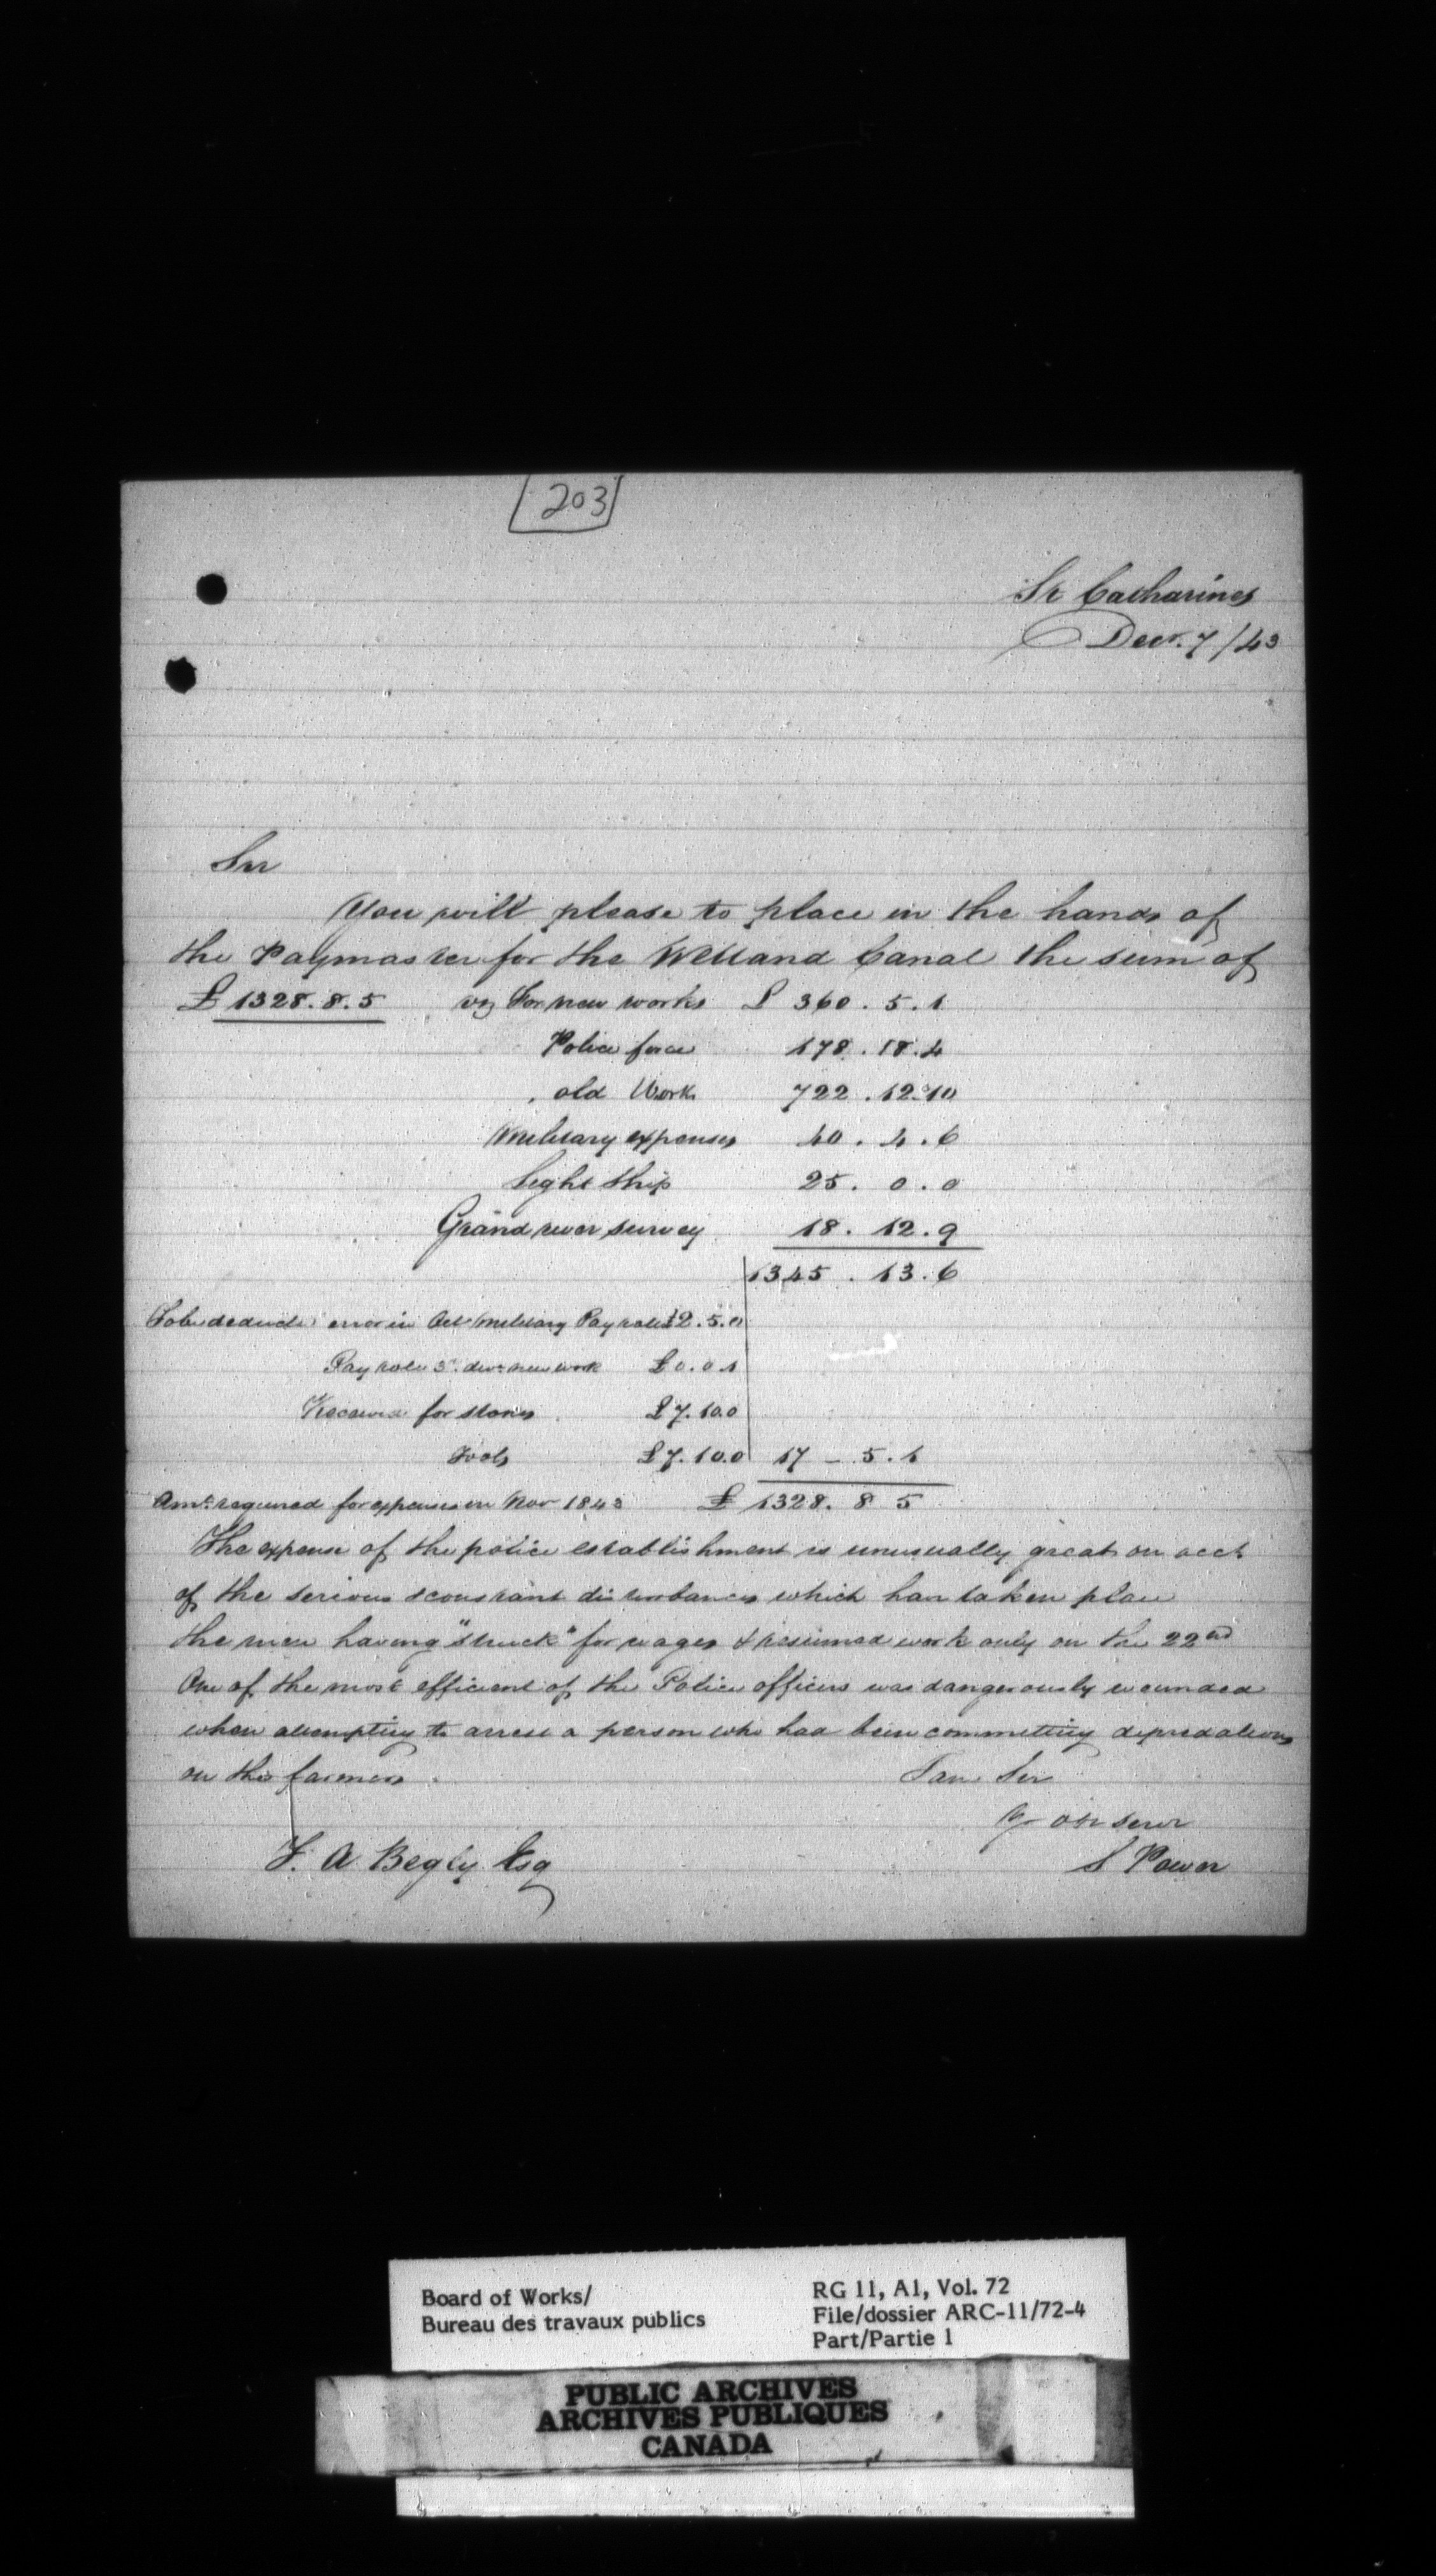 203
St Catharines
Decr. 7/43
Sir
You will please to place in the hands of
the Paymaster for the Welland Canal the sum of
£1328.8.5 viz For new works £ 360.5.1
Police force 178.18.4
old Work 722.12.10
Military expenses 40.4.6
Light Ship 25.0.0
Grand river survey 18.12.9
1345.13.6
To be deducted error in Oct Military Pay roll £2.5.0
Pay roll 3d. divn new work £0.0.1
Received for stones £7.10.0
Tools £7.10.0 17-5.1
Amt. required for expenses in Nov 1843 £ 1328.8 5
The expense of the police establishment is unusually great on acct
of the serious & constant disturbances which have taken place
the men having "struck" for wages & resumed work only on the 22nd
One of the most efficient of the Police officers was dangerously wounded
when attempting to arrest a person who had been committing depredations
on the farmers.
I am Sir
Yr obt servt
S Power
F. A Begly Esq
Board of Works/
Bureau des travaux publics
RG 11, A1, Vol. 72
File/dossier ARC-11/72-4
Part/Partie 1
PUBLIC ARCHIVES
ARCHIVES PUBLIQUES
CANADA